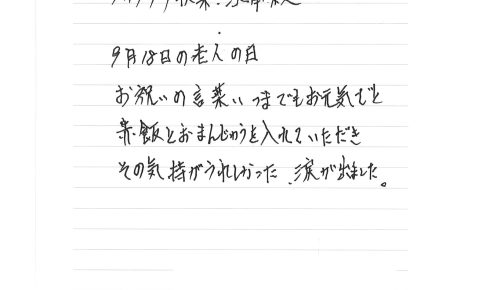 9月18日の老人の日
お祝いの言葉いつまでもお元気でと
赤飯とおまんじゅうを入れていただき
その気持がうれしかった、涙が出ました。